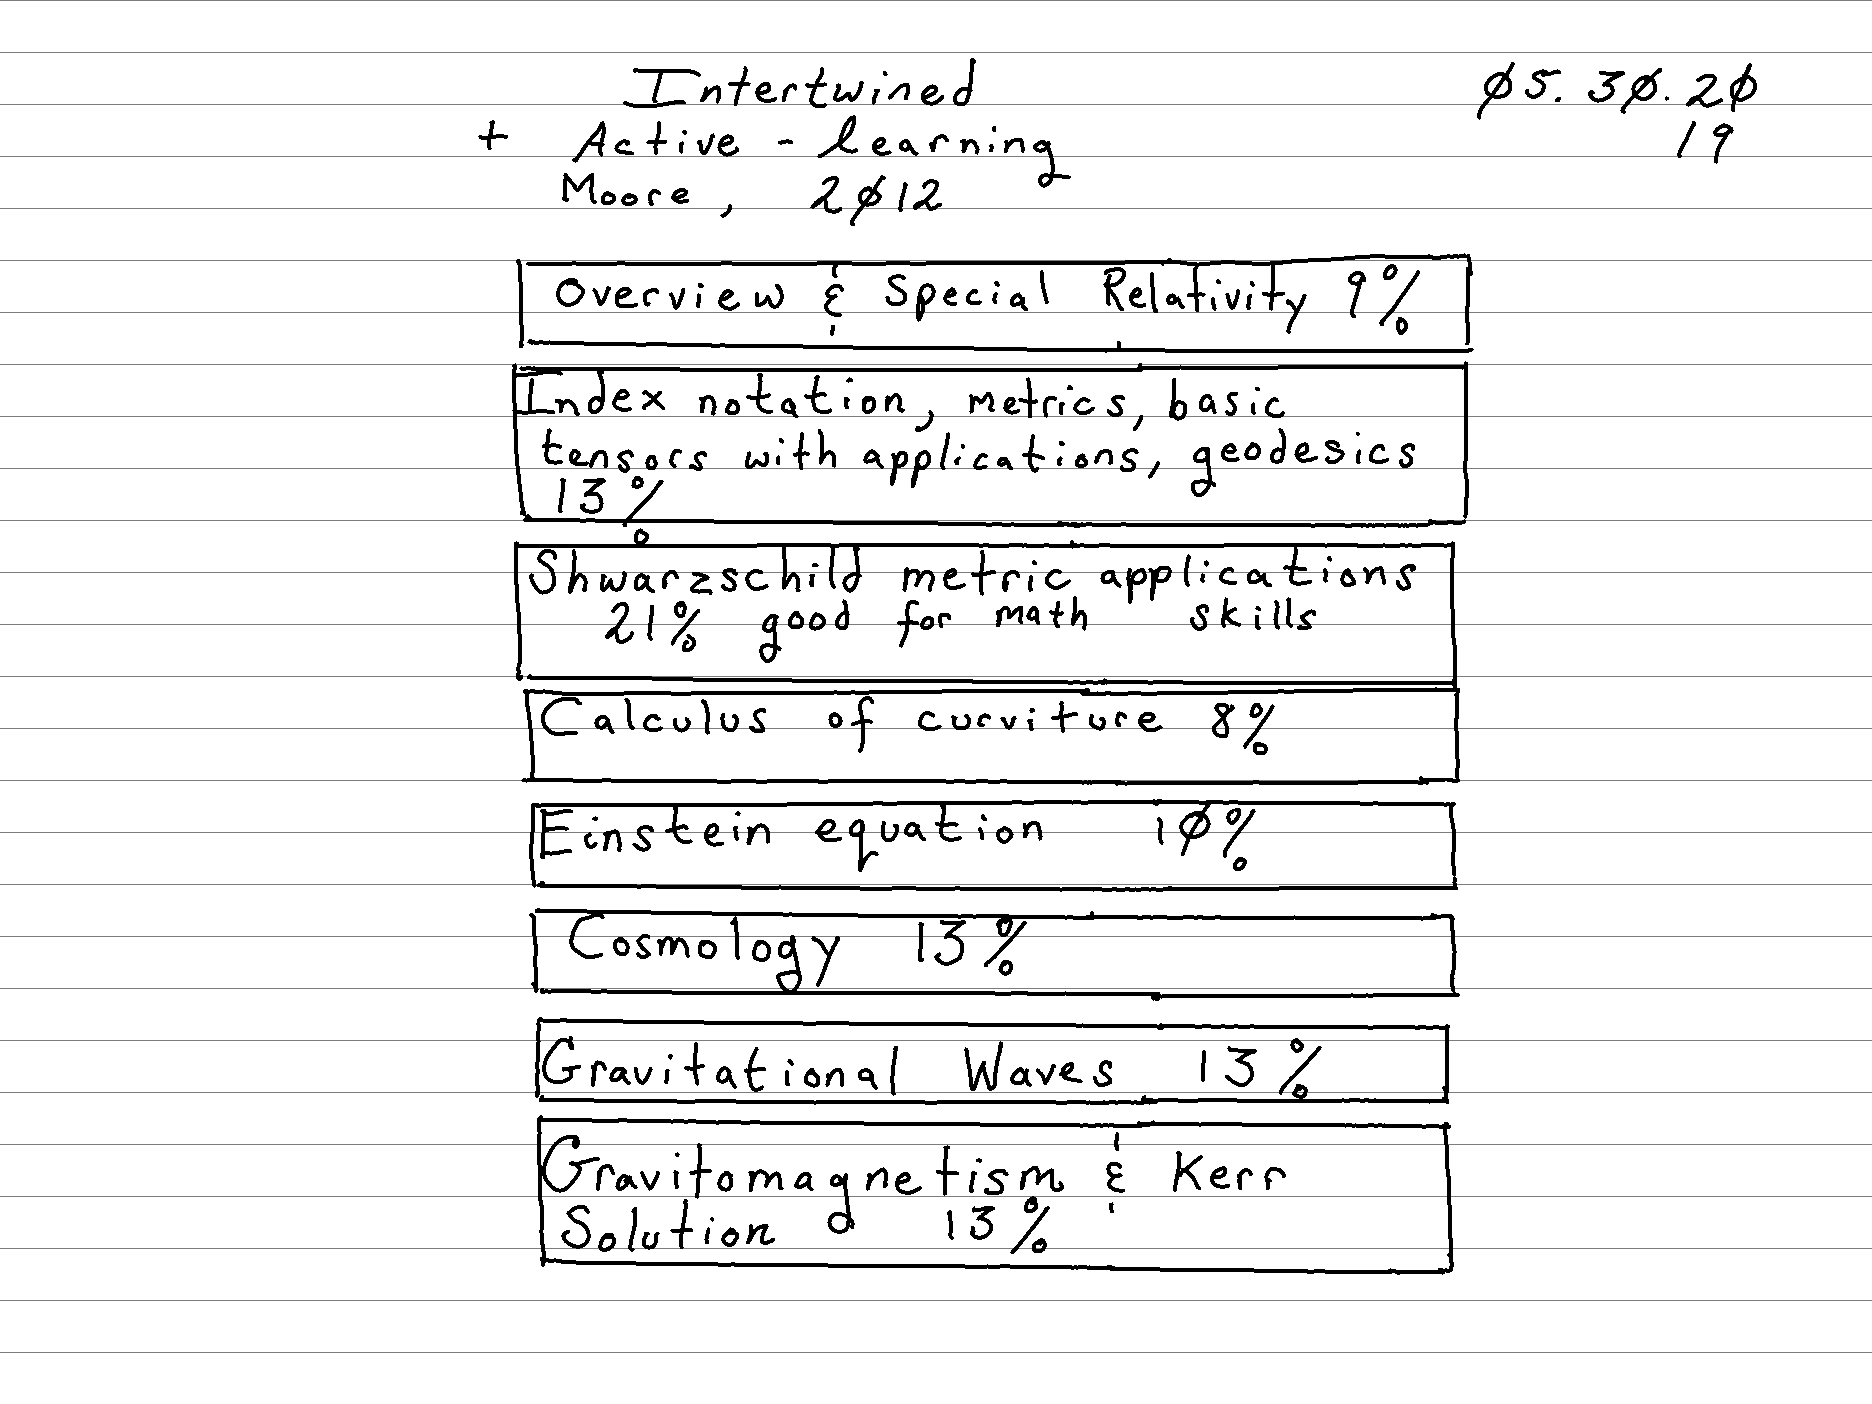 Intertwined
+ Active - learning
Moore, 2Ø12
Ø5. 3Ø. 2Ø
19
Overview & Special Relativity 9%
Index notation, metrics, basic
tensors with applications, geodesics
13%
Shwarzschild metric applications
21% good for math skills
Calculus of curviture 8%
Einstein equation 1Ø%
Cosmology 13%
Gravitational Waves 13%
Gravitomagnetism & Kerr
Solution 13%